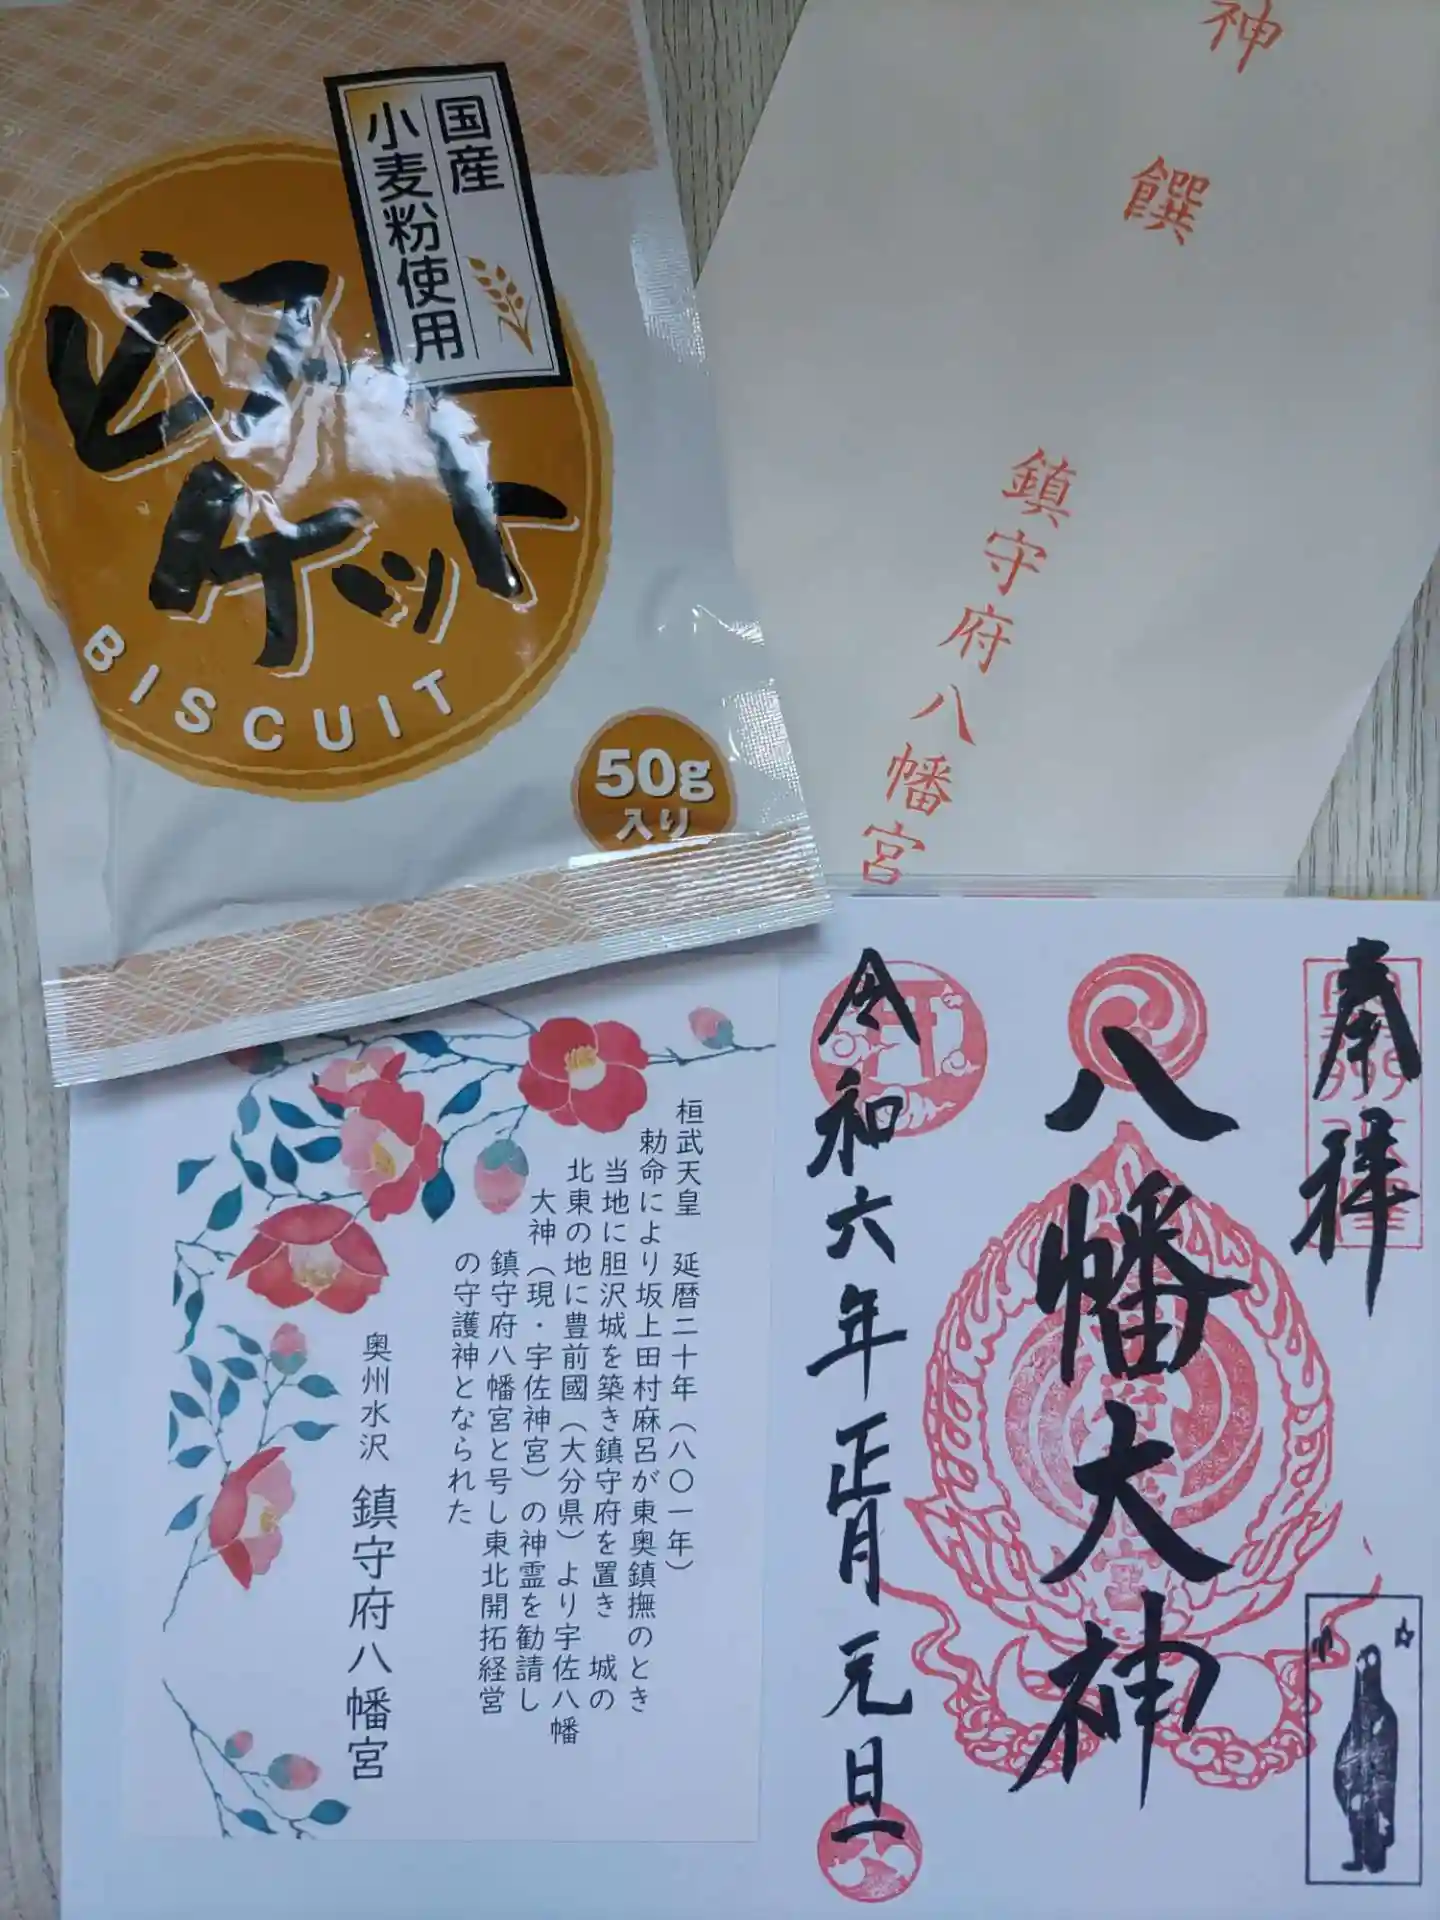 国産
小麦粉使用
ビスケット
BISCUIT
50g
入り
神
饌
鎮守府八幡宮
桓武天皇 延暦二十年(八〇一年)
勅命により坂上田村麻呂が東奥鎮撫のとき
当地に胆沢城を築き鎮守府を置き 城の
北東の地に豊前國(大分県)より宇佐八幡
大神(現・宇佐神宮)の神霊を勧請し
鎮守府八幡宮と号し東北開拓経営
の守護神となられた
奥州水沢 鎮守府八幡宮
奉拝
八幡大神
令和六年正月元旦